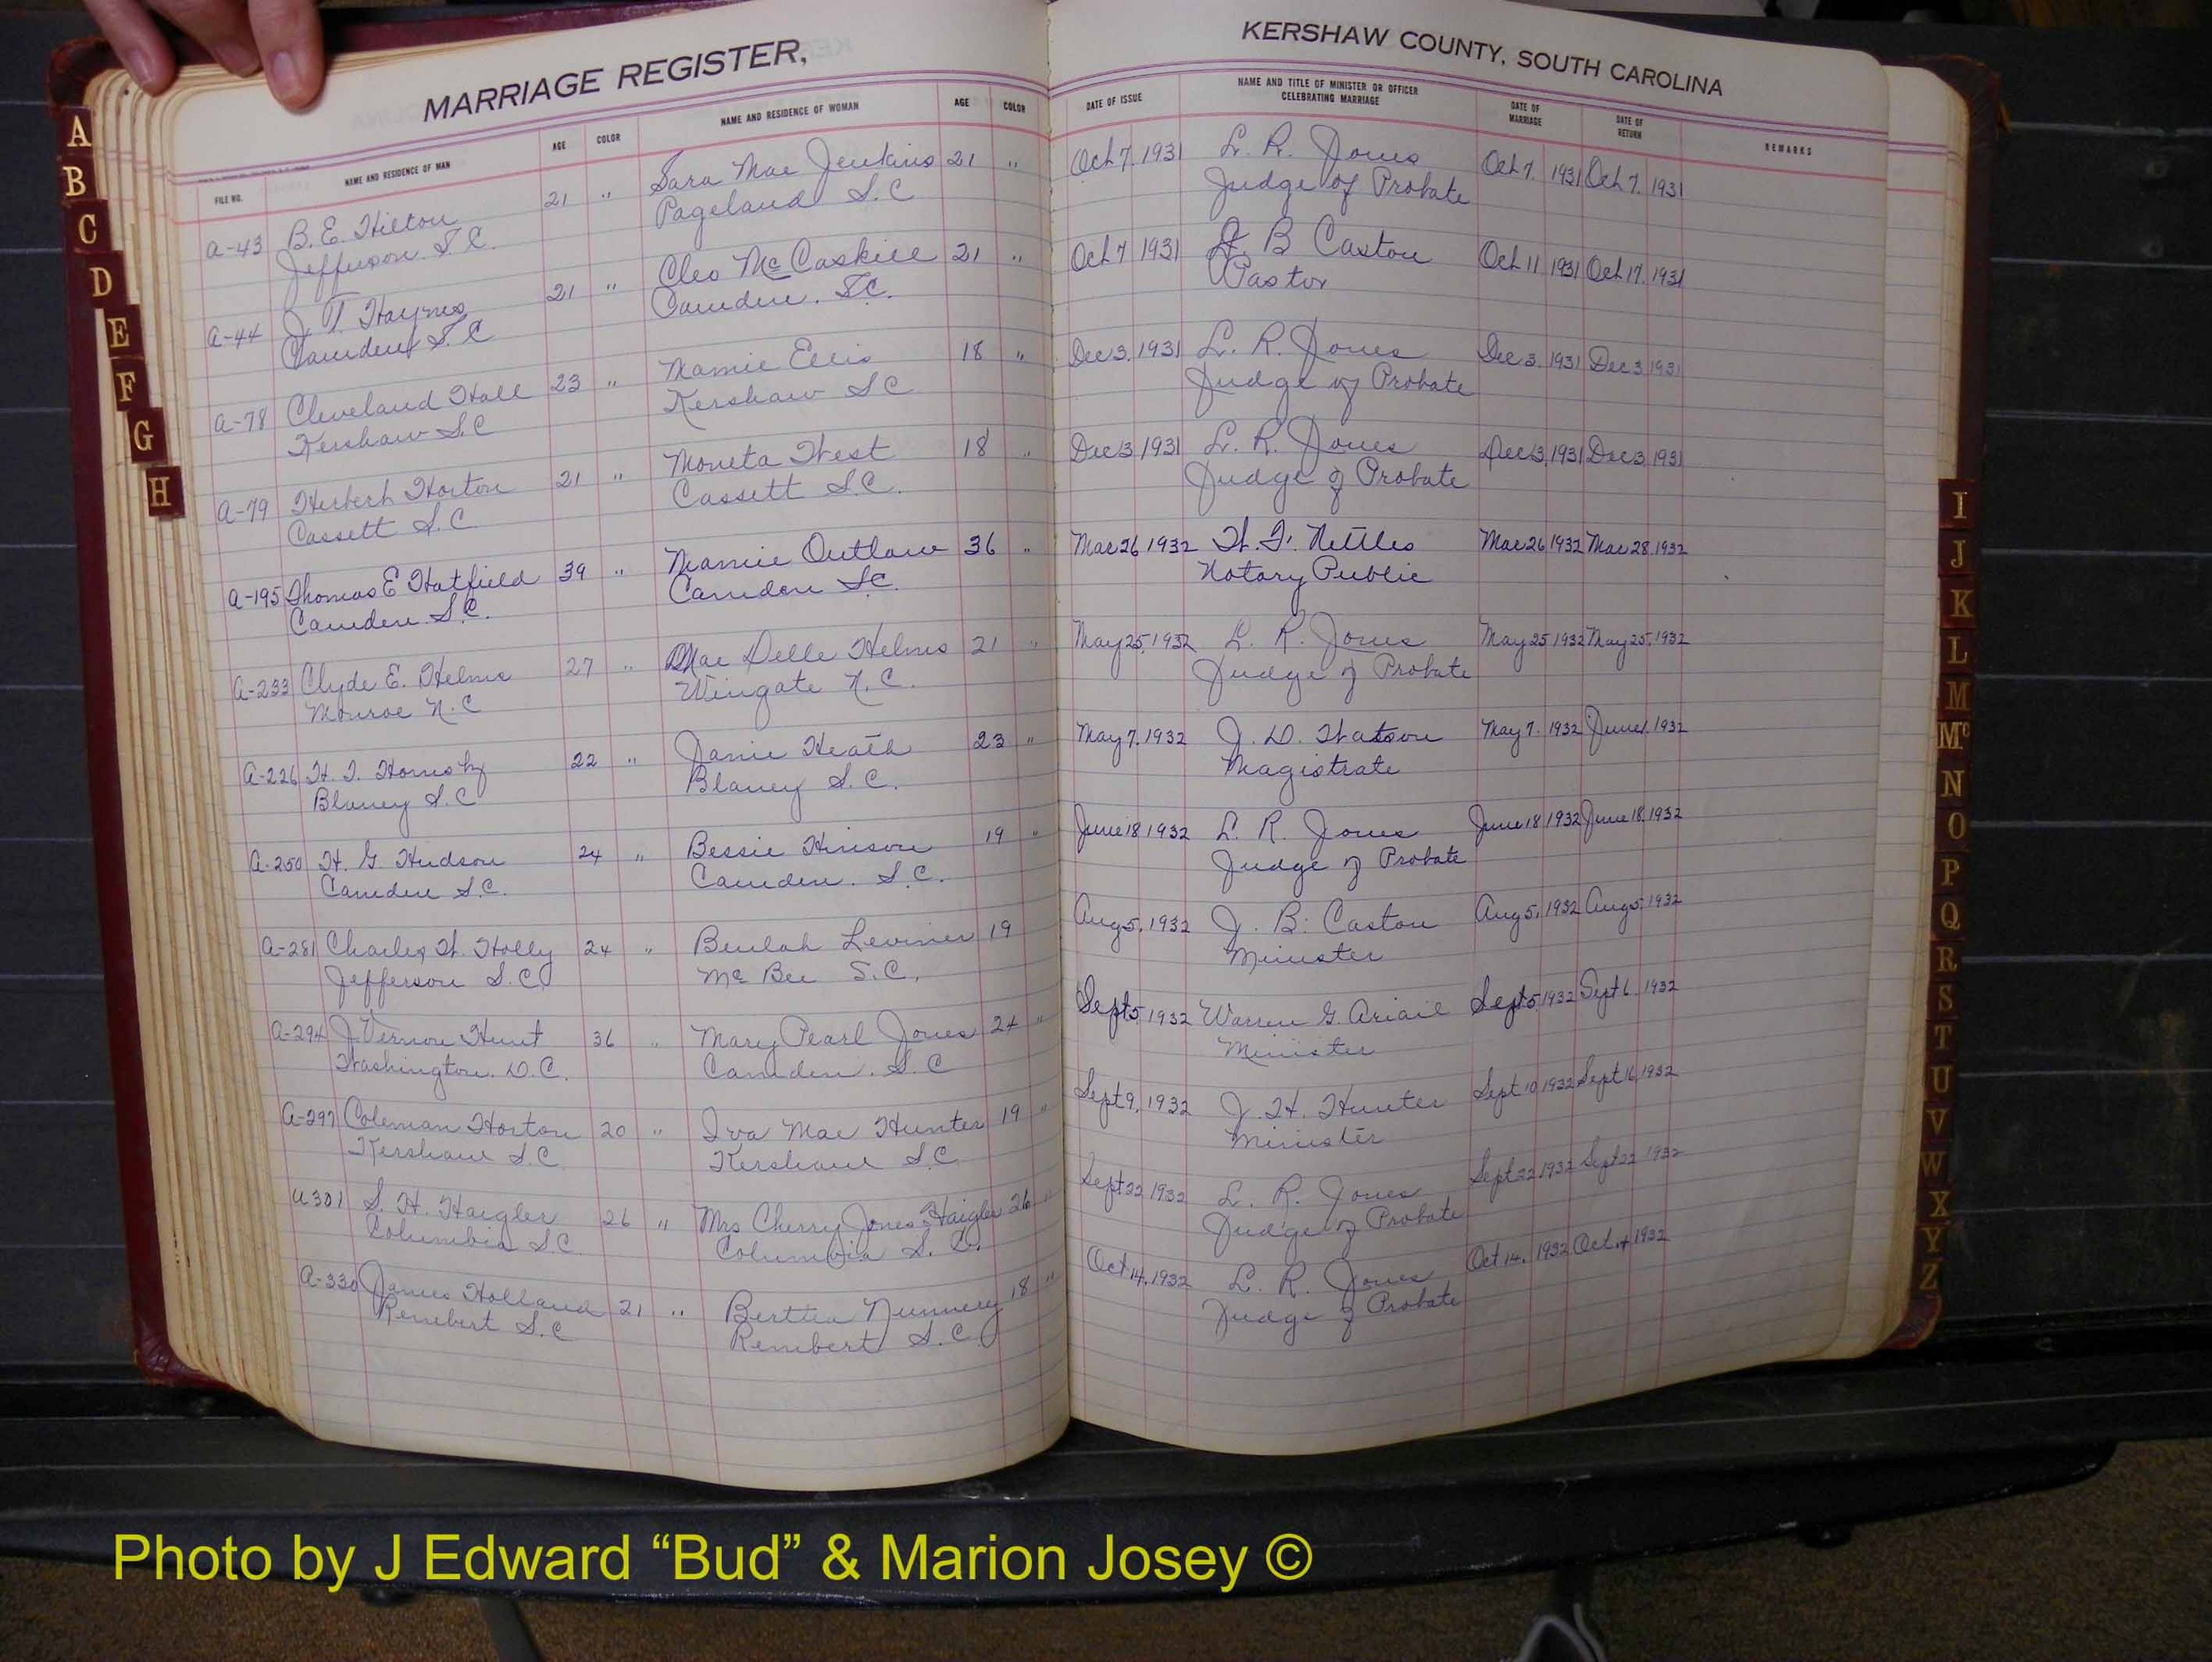 MARRIAGE REGISTER,
KERSHAW COUNTY, SOUTH CAROLINA
FILE NO. NAME AND RESIDENCE OF MAN AGE COLOR NAME AND RESIDENCE OF WOMAN AGE COLOR DATE OF ISSUE NAME AND TITLE OF MINISTER OR OFFICER CELEBRATING MARRIAGE DATE OF MARRIAGE DATE OF RETURN REMARKS
A-43 B. E. Hilton 21 " Sara Mae Jenkins 21 " Oct 7. 1931 L. R. Jones Oct 7. 1931 Oct 7. 1931
Jefferson S.C. Pageland S.C Judge of Probate
A-44 J. T. Haynes 21 " Cleo McCaskill 21 " Oct 7 1931 J. B Caston Oct 11 1931 Oct 17. 1931
Camden S.C Camden. S.C. Pastor
A-78 Cleveland Hall 23 " Mamie Ellis 18 " Dec 3. 1931 L. R. Jones Dec 3. 1931 Dec 3 1931
Kershaw S.C Kershaw SC Judge of Probate
A-79 Herbert Horton 21 " Moneta West 18 " Dec 3 1931 L. R. Jones Dec 3, 1931 Dec 3 1931
Cassett S.C Cassett S.C. Judge of Probate
A-195 Thomas E Hatfield 39 " Mamie Outlaw 36 " Mar 26 1932 W. F. Nettles Mar 26 1932 Mar 28 1932
Camden S.C. Camden S.C. Notary Public
A-233 Clyde E. Helms 27 " Mae Delle Helms 21 " May 25, 1932 L. R. Jones May 25 1932 May 25, 1932
Monroe N.C Wingate N.C. Judge of Probate
A-226 H. T. Hornsby 22 " Janie Heath 23 " May 7, 1932 J. D. Watson May 7. 1932 June 1 1932
Blaney S.C Blaney S.C. Magistrate
A-250 H. G. Hudson 24 " Bessie Hinson 19 " June 18 1932 L. R. Jones June 18 1932 June 18, 1932
Camden S.C. Camden. S.C. Judge of Probate
A-281 Charles W. Holly 24 " Beulah Leviner 19 Aug 5, 1932 J. B. Caston Aug 5, 1932 Aug 5 1932
Jefferson S.C. McBee S.C. Minister
A-294 J. Vernon Hunt 36 " Mary Pearl Jones 24 " Sept 5, 1932 Warren G. Ariail Sept 5 1932 Sept 6. 1932
Washington. D.C. Camden. S.C Minister
A-297 Coleman Horton 20 " Iva Mae Hunter 19 " Sept 9, 1932 J. H. Hunter Sept 10 1932 Sept 16, 1932
Kershaw S.C. Kershaw S.C. Minister
A 301 S. H. Haigler 26 " Mrs Cherry Jones Haigler 26 " Sept 22 1932 L. R. Jones Sept 22 1932 Sept 22 1932
Columbia S.C. Columbia S.C. Judge of Probate
A-330 James Holland 21 " Bertha Nunnery 18 " Oct 14, 1932 L. R. Jones Oct 14. 1932 Oct 1932
Rembert S.C Rembert S.C. Judge of Probate
A
B
C
D
E
F
G
H
I
J
K
L
M
Mc
N
O
P
Q
R
S
T
U
V
W
X
Y
Z
Photo by J Edward “Bud” & Marion Josey ©